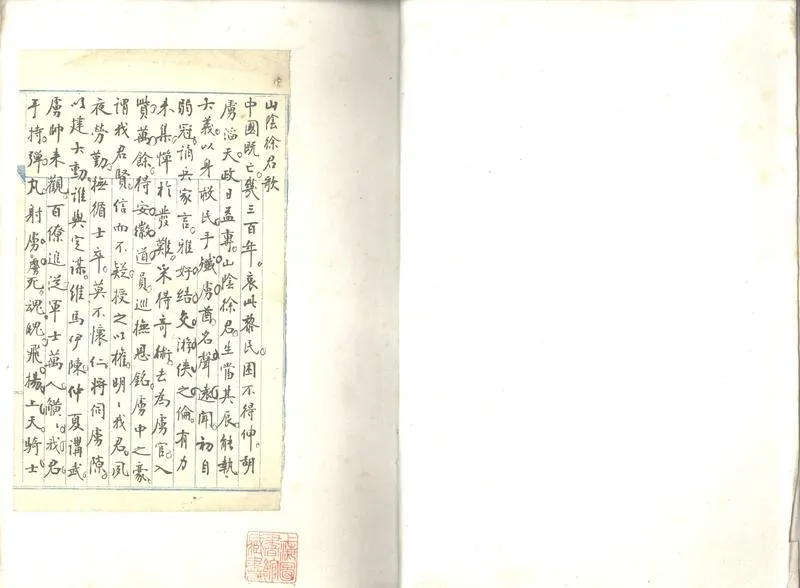 山陰徐君歌
中國既亡幾三百年。哀此黎民。困不得伸。胡
虜滔天。政日益專。山陰徐君。生當其辰。能執
大義。以身救民。手殲虜酋。名聲遠聞。初自
弱冠。誦兵家言。雅好結交。游俠之倫。有力
未集。憚於發難。采得奇術。去為虜官。入
貲萬餘。得安徽道員。巡撫恩銘。虜中之豪。
謂我君賢。信而不疑。授之以權。明明我君。夙
夜勞勤。撫循士卒。莫不懷仁。將伺虜隙。
以建大勳。誰與定謀。維馬伊陳。仲夏講武。
虜帥來觀。百僚進逆。軍士萬人。觵觵我君。
手持彈丸。射虜。虜死。魂魄飛揚。上天。騎士